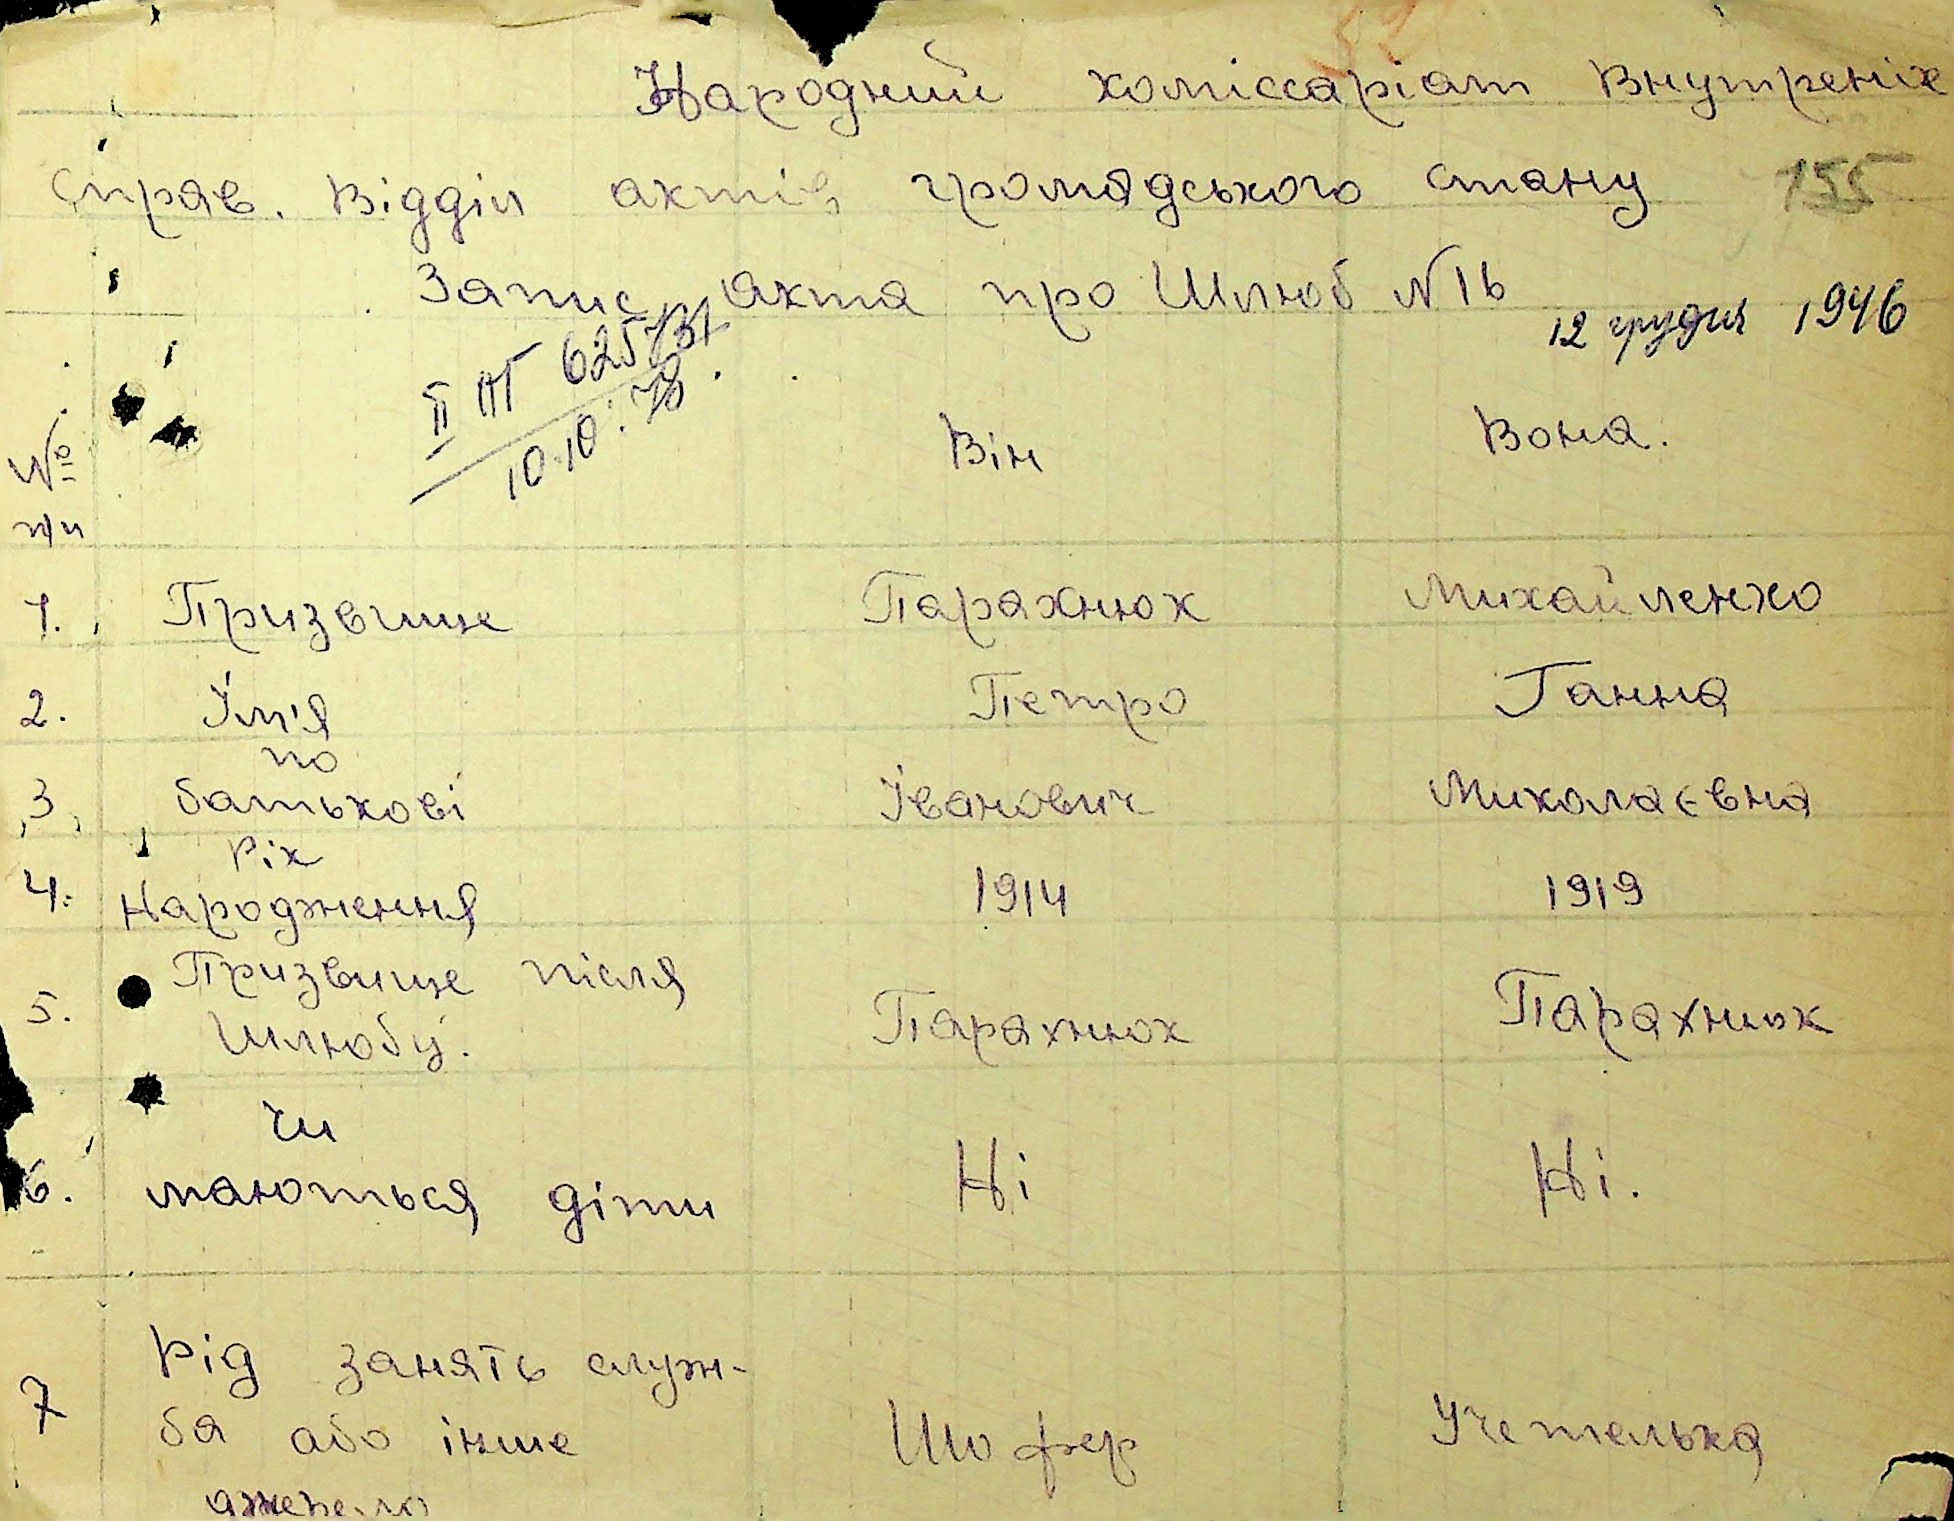 Народний коміссаріат Внутреніх
справ. Відділ актів громадського стану 155
Запис акта про Шлюб №16
12 грудня 1946
10.10.78.
№
п/п
Він Вона.
1. Призвище Парахнюк Михайленко
2. Їм'я Петро Ганна
3, по
батькові Їванович Миколаєвна
4. Рік
Народження 1914 1919
5. Призвище після
Шлюбу. Парахнюк Парахнюк
6. Чи
маються діти Ні Ні.
7 Рід занять служ-
ба або інше Шофер Учетелька